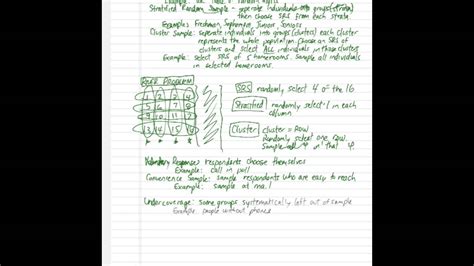 Example: use Table of random digits
Stratified Random Sample - seperate individuals into groups (strata)
then choose SRS from each strata
Example: Freshmen, Sophomores, Juniors, Seniors
Cluster Sample: seperate individuals into groups (clusters) each cluster
represents the whole population. Choose an SRS
of clusters and select ALL individuals in those clusters
Example: select SRS of 5 homerooms. Sample all individuals
in selected homerooms.
RIVER PROBLEM
1 2 3 4
5 6 7 8
9 10 11 12
13 14 15 16
SRS randomly select 4 of the 16
Stratified randomly select 1 in each
column
Cluster cluster = ROW
Randomly select one row.
Sample all in that
Voluntary Response: respondents choose themselves
Example: call in poll
Convenience Sample: sample respondents who are easy to reach
Example: sample at mall
Undercoverage: some groups systematically left out of sample
Example: people without phones